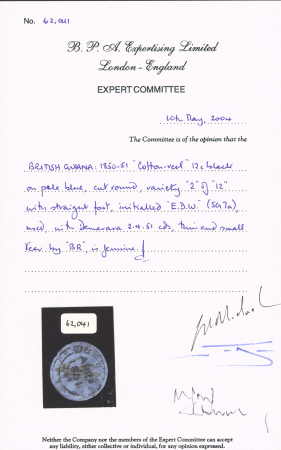 No. 62,041
B. P. A. Expertising Limited
London - England
EXPERT COMMITTEE
10th May, 2004
The Committee is of the opinion that the
BRITISH GUIANA: 1850-51 "Cotton-reel" 12c black
on pale blue, cut round, variety "2" of "12"
with straight foot, initialled "E.D.W." (SG7a),
used, with Demerara 2.4.51 cds, thin and small
tear by "BR", is genuine.
62,041
Neither the Company nor the members of the Expert Committee can accept
any liability, either collective or individual, for any opinion expressed.